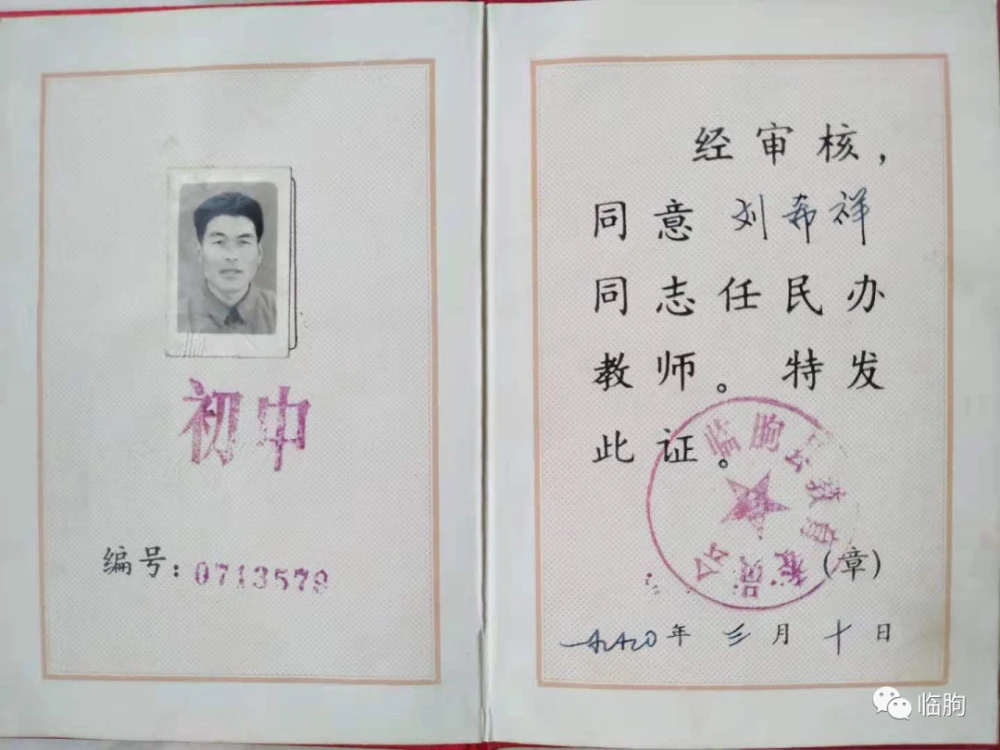 初中
编号：0713579
经审核，
同意刘希祥
同志任民办
教师。特发
此证。
临朐县教育
（章）
一九八〇年三月十日
临朐